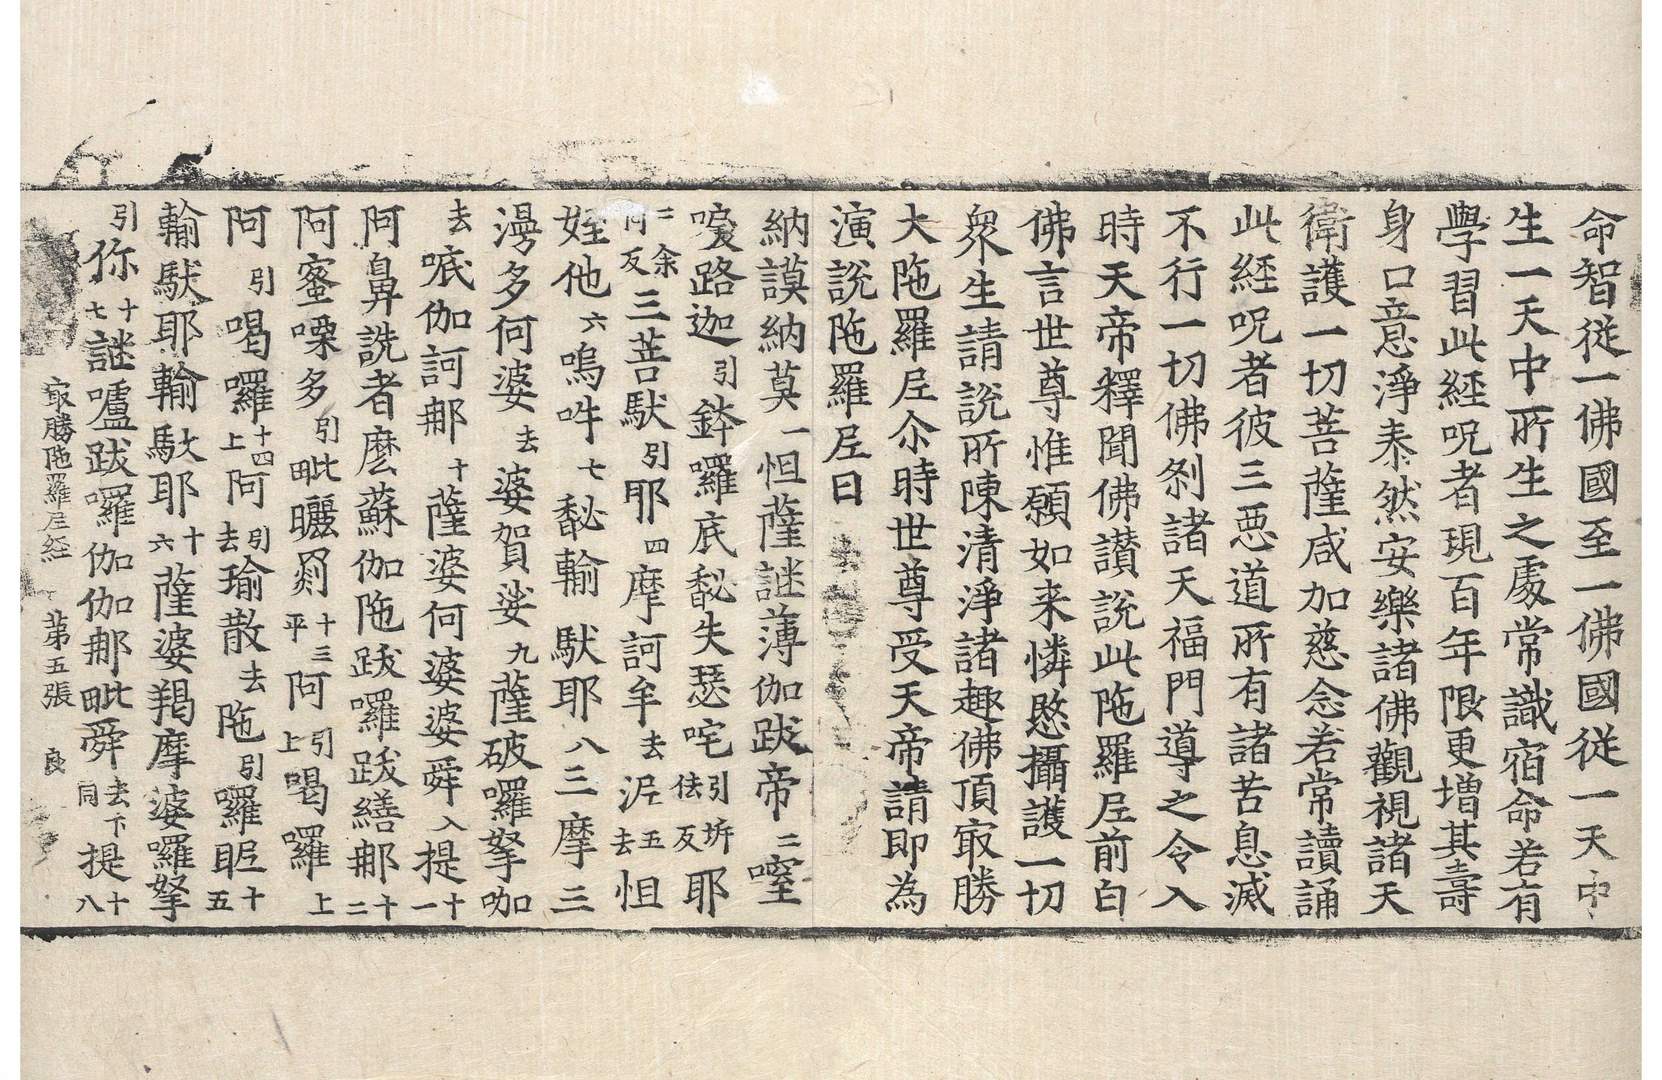 命智從一佛國至一佛國從一天中
生一天中所生之處常識宿命若有
學習此經呪者現百年限更增其壽
身口意淨泰然安樂諸佛觀視諸天
衛護一切菩薩咸加慈念若常讀誦
此經呪者彼三惡道所有諸苦息滅
不行一切佛刹諸天福門導之令入
時天帝釋聞佛讃說此陁羅尼前白
佛言世尊惟願如来憐愍攝護一切
衆生請說所陳清淨諸趣佛頂㝡勝
大陁羅尼尒時世尊受天帝請即為
演說陁羅尼曰
納謨納莫一怛薩謎薄伽跋帝二嚂
路迦引鉢囉底馝失瑟咤引坼佉反耶
三余何反三菩馱引耶四摩訶牟去泥五去怛
姪他六嗚吽七馝輸馱耶八三摩三
漫多何婆去婆賀娑九薩破囉拏咖
去哌伽訶郍十薩婆何婆婆舜入提十一
阿鼻詵者麽蘇伽陁跋囉跋繕郍十二
阿蜜㗚多引毗曬罽十三平阿引上喝囉上
阿引喝囉十四上阿引去瑜散去陁引囉呢十五
輸馱耶輸馱耶十六薩婆羯摩婆囉拏
引你十七謎嚧跋囉伽伽郍毗舜去下同提十八
㝡勝陁羅尼經 苐五張 良